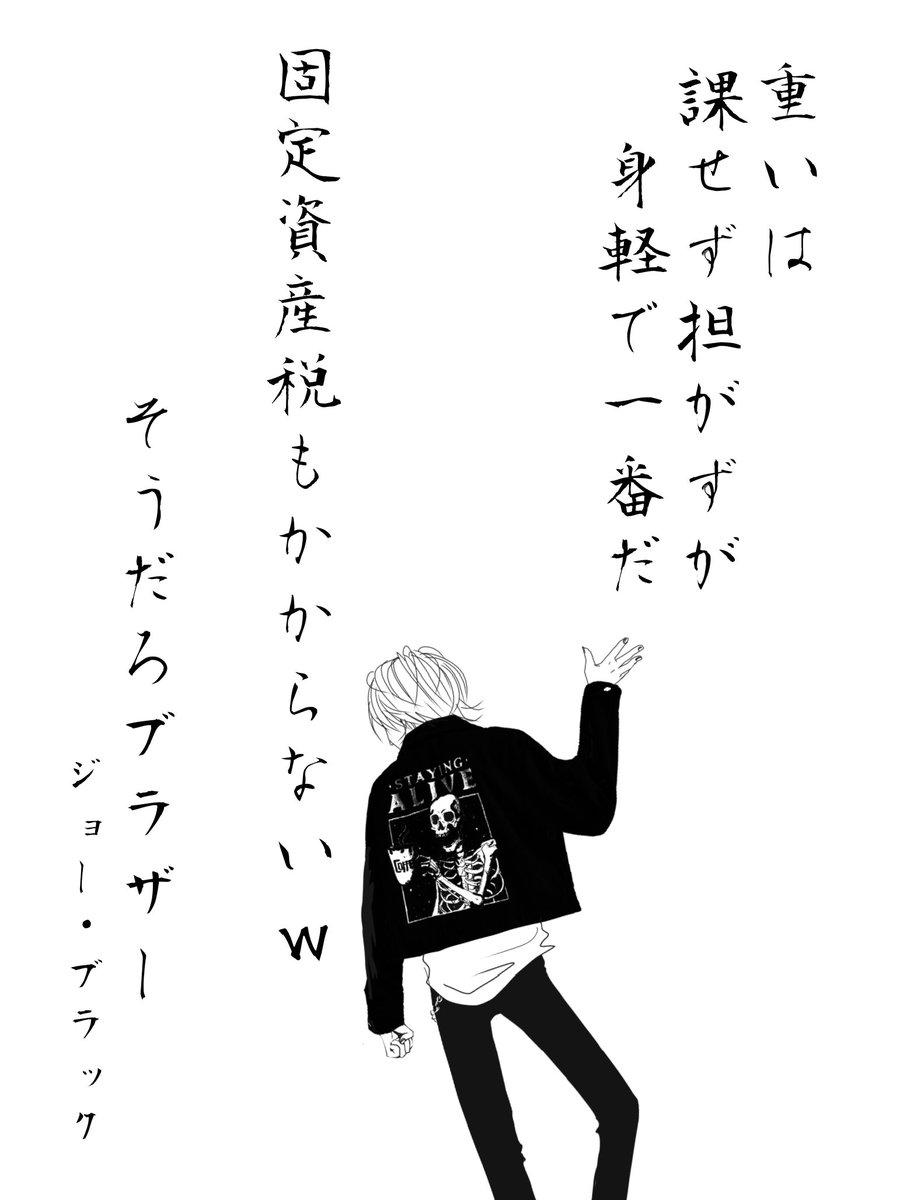 重いは
課せず担がずが
身軽で一番だ
固定資産税もかからないw
そうだろブラザー
ジョー・ブラック
·STAYING·
ALIVE
COFFEE